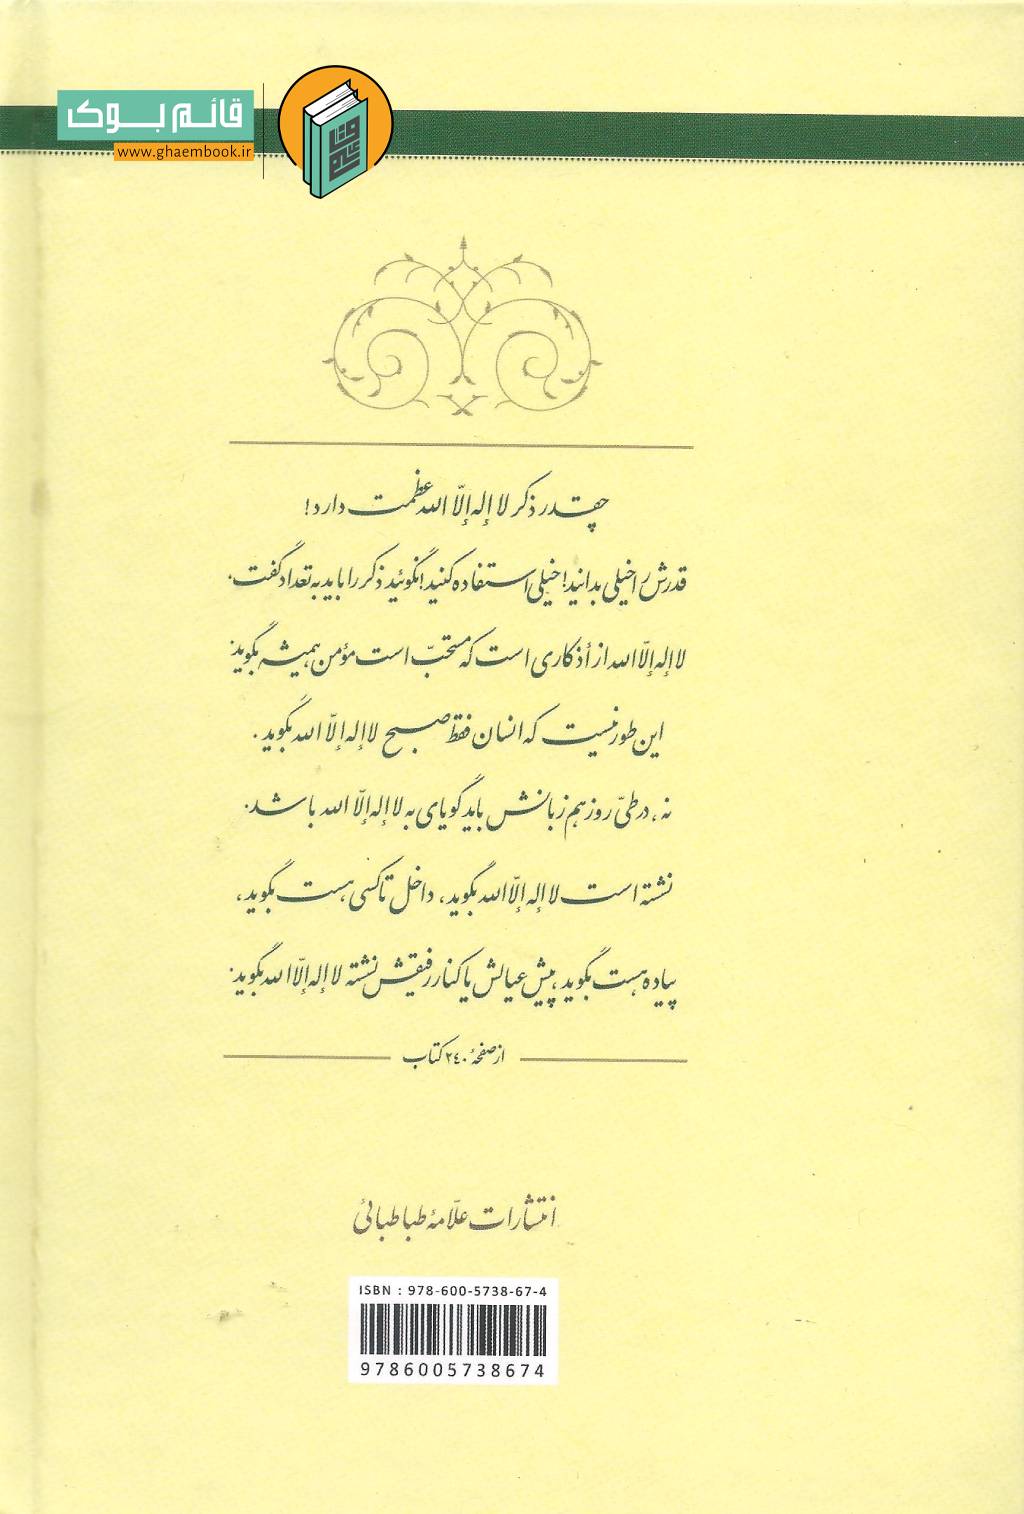 قائم بوک
www.ghaembook.ir
چقدر ذکر لا إله إلّا الله عظمت دارد!
قدرش را خیلی بدانید! خیلی استفاده کنید! نگوئید ذکر را باید به تعداد گفت.
لا إله إلّا الله از أذکاری است که مستحبّ است مؤمن همیشه بگوید.
این طور نیست که انسان فقط صبح لا إله إلّا الله بگوید.
نه، در طیّ روز هم زبانش باید گویای به لا إله إلّا الله باشد.
نشسته است لا إله إلّا الله بگوید، داخل تاکسی هست بگوید،
پیاده هست بگوید، پیش عیالش یا کنار رفیقش نشسته لا إله إلّا الله بگوید.
از صفحهٔ ٢٤٠ کتاب
انتشارات علّامهٔ طباطبائی
ISBN : 978-600-5738-67-4
9786005738674